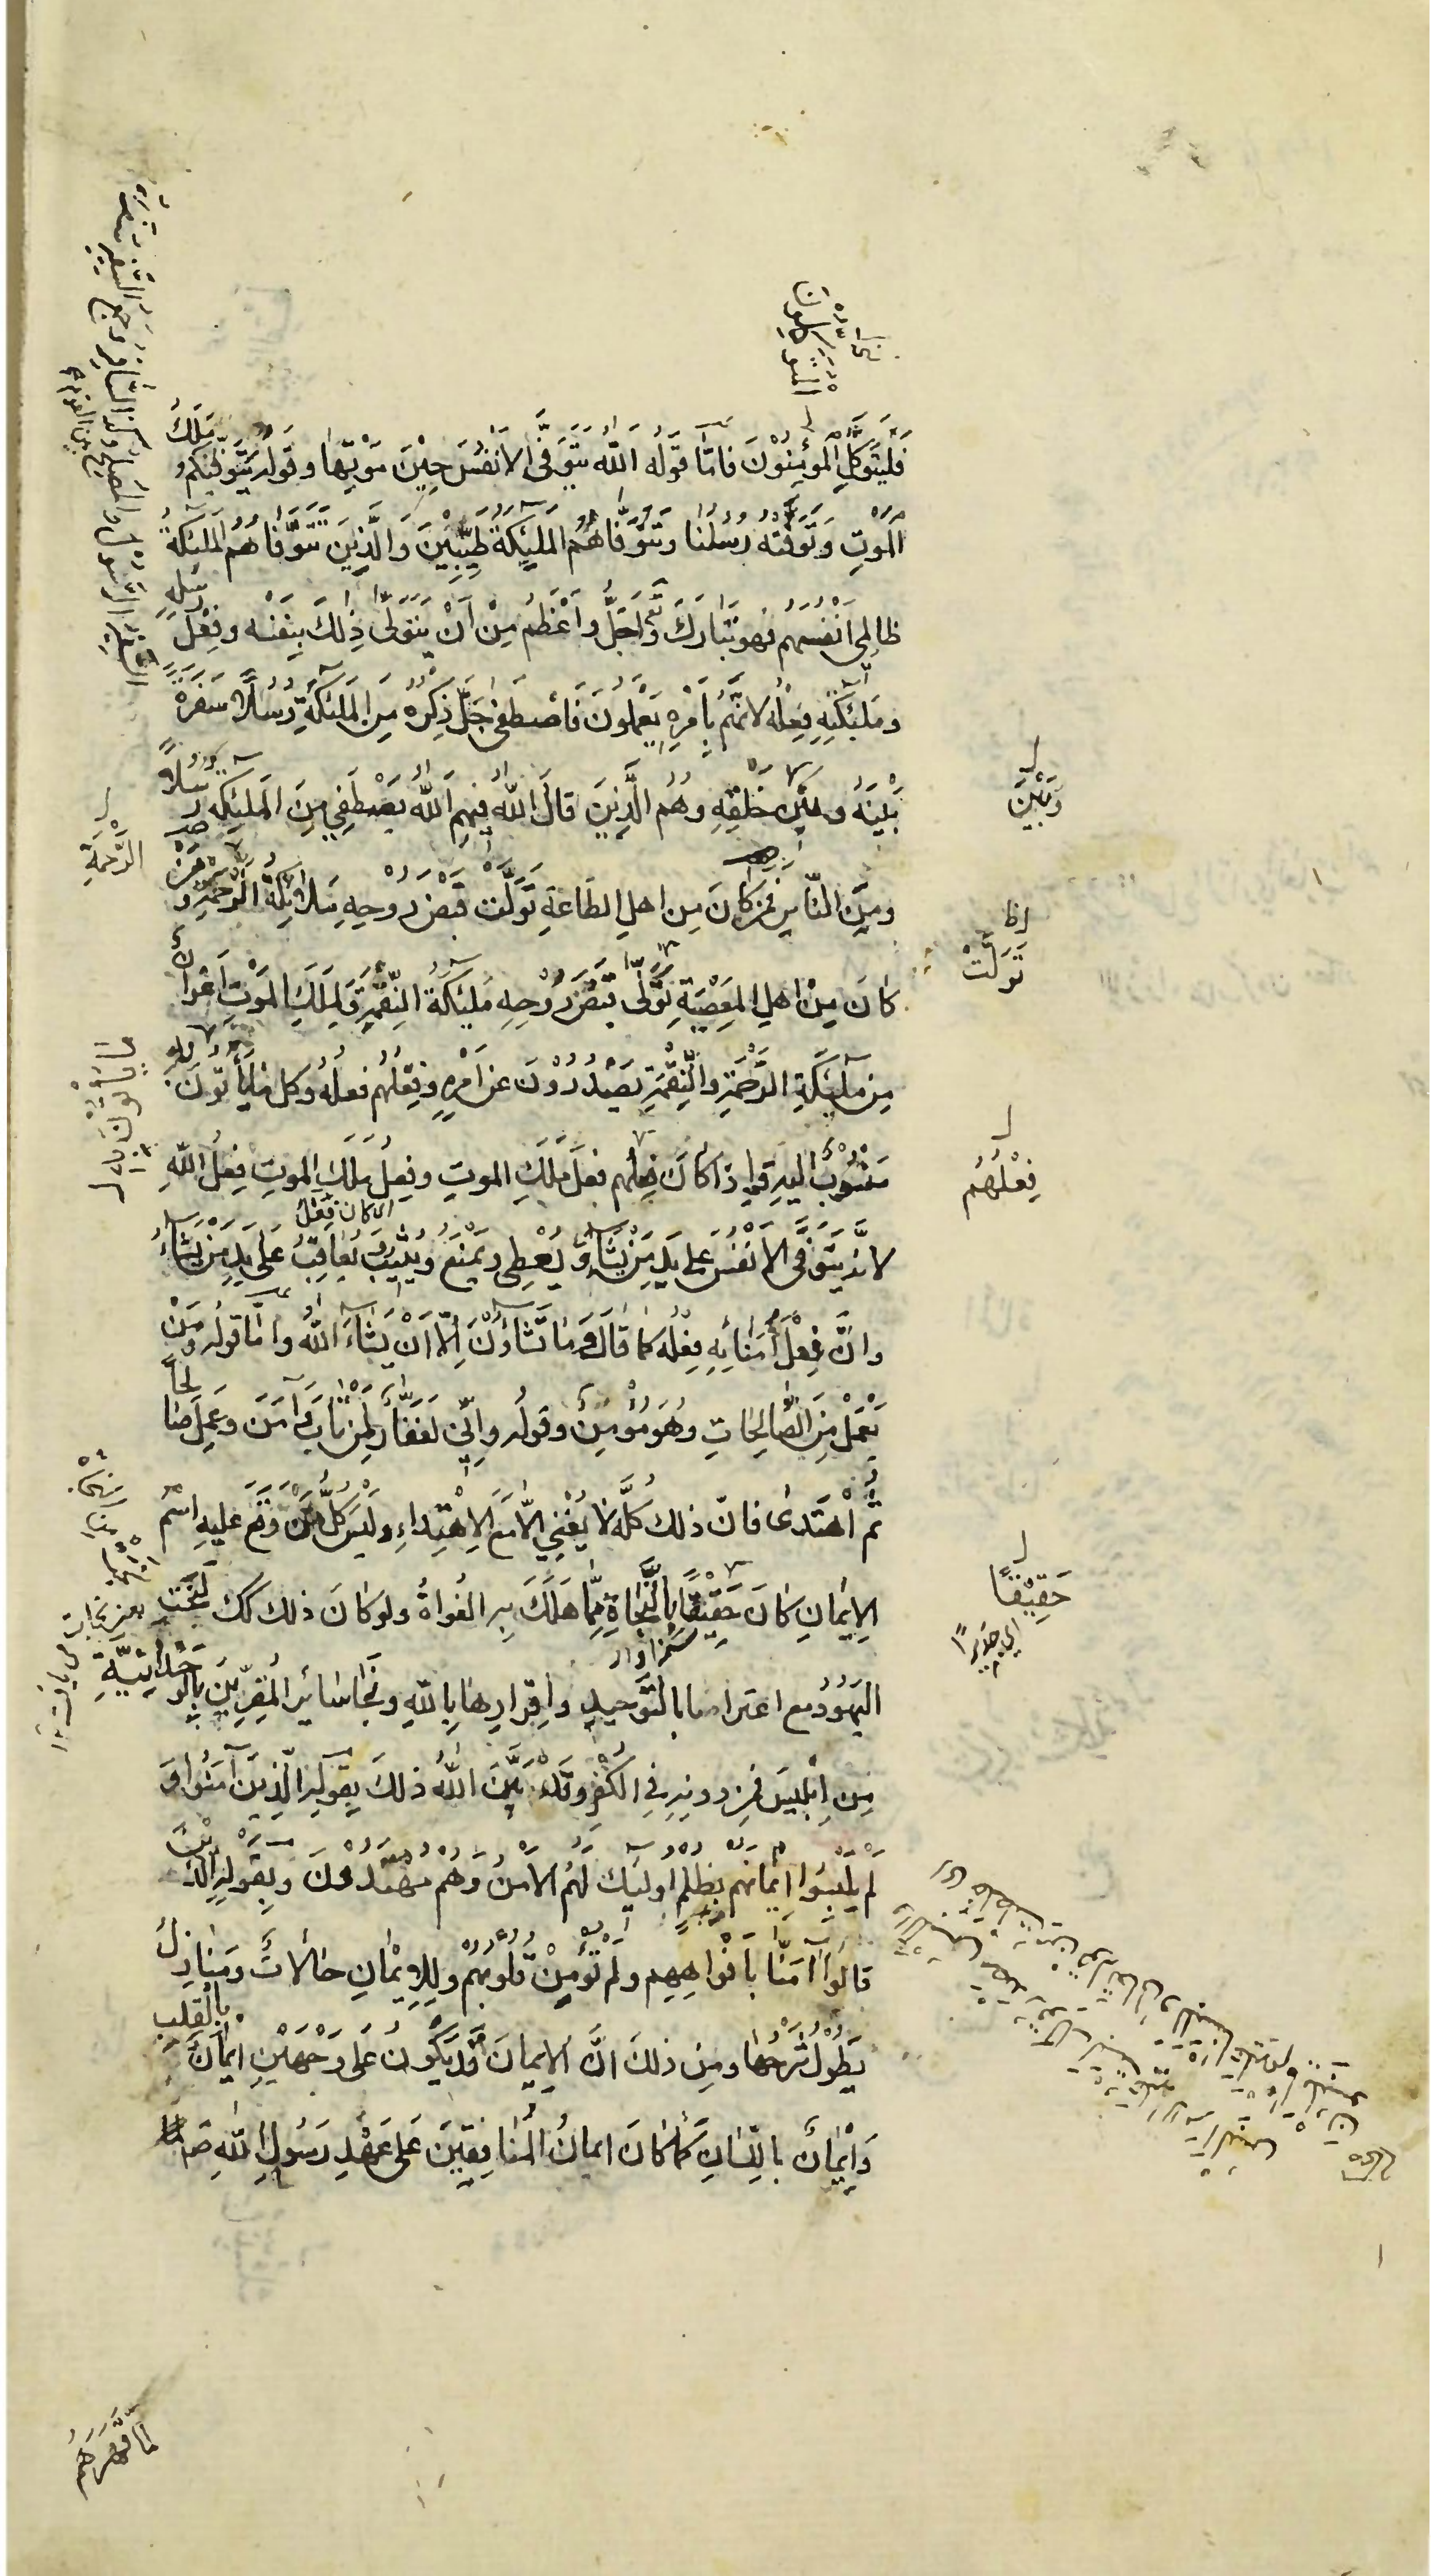 فَلْيَتَوَكَّلِ الْمُؤْمِنُوْنَ فَامَّا قَوْلُه اَللّٰهُ يَتَوَفَّى الْاَنْفُسَ حِيْنَ مَوْتِهَا وقَولُه يَتَوَفّٰيكُمْ مَلَكُ
الْمَوْتِ وَتَوَفَّتْهُ رُسُلُنَا وتَتَوَفَّاهُمُ المَلٰئِكَةُ طَيِّبِيْنَ وَالَّذِيْنَ تَتَوَفَّاهُمُ المَلٰئِكَةُ
ظَالِمِي اَنْفُسِهِم فهو تَبَارَكَ وَتَعٰ اَجَلُّ واَعْظَمُ مِنْ اَنْ يَتَوَلّٰى ذٰلِكَ بِنَفْسِه وفِعْلُ رُسُلِهِ
ومَلٰئِكَتِهِ فِعْلُه لاَنَّهُم بِاَمْرِهِ يَعْمَلُونَ فَاصْطَفٰى جَلَّ ذِكْرُهُ مِنَ المَلٰئِكَةِ رُسُلًا وسَفَرَةً
بَيْنَهُ وبَيْنَ خَلْقِهِ وهُمُ الَّذِيْنَ قَالَ اللّٰهُ فِيهِم اَللّٰهُ يَصْطَفِي مِنَ المَلٰئِكَه رُسُلًا
ومِنَ النَّاسِ فمَن كَانَ مِن اهلِ الطَاعَةِ تَوَلَّت قَبْضَ رُوحِهِ مَلائِكَةُ الرَّحْمَةِ ومَنْ
كَانَ مِنْ اهلِ المَعْصِيَةِ تَوَلّٰى قَبْضَ رُوْحِهِ مَلٰئِكَةُ النِّقْمَةِ ولِمَلَكِ المَوْتِ اَعْوَانٌ
مِن مَلٰئِكَةِ الرَّحْمَةِ والنِّقْمَةِ يَصْدُرُوْنَ عَن اَمْرِهِ وفِعْلُهُم فعلُهُ وكل مَا يَأْتُونَ به
مَنْسُوْبٌ اليهِ واِذَا كَانَ فعلُهم فعلَ مَلَكِ الموتِ وفِعلُ مَلَكِ الموتِ فِعلُ اللّٰهِ
لاَنَّه يَتَوَفَّى الاَنْفُسَ على يَدِ مَنْ يَشَاءُ ويُعْطِى ويَمْنَعُ ويُثِيْبُ ويُعَاقِبُ عَلٰى يَدِ مَنْ يَشَاءُ
واِنَّ فِعْلَ اُمَنَائِهِ فِعْلُه كما قَالَ وَمَا تَشَاؤُنَ اِلّا اَنْ يَشَاءَ اللّٰهُ واَمَّا قولُه وَمَنْ
يَعْمَلْ مِنَ الصَّالِحَاتِ وهُوَ مُؤْمِنٌ وقولُه واِنِّي لَغَفَّارٌ لِمَنْ تَابَ وآمَنَ وعَمِلَ صَالِحًا
ثُمَّ اهْتَدٰى فاِنَّ ذلك كُلَّه لا يُغْنِي الّا مَعَ الاِهْتِدَاءِ ولَيْسَ كُلُّ مَنْ وَقَعَ عَلَيهِ اسْمُ
الاِيْمَانِ كَانَ حَقِيْقًا بِالنَّجَاةِ مِمَّا هَلَكَ بِهِ الغُوَاةُ ولَو كَانَ ذلك كك لَنَجَتِ
اليَهُوْدُ مع اعترافها بالتَّوحِيدِ واِقْرَارِهَا بِاللّٰهِ ونَجَا سَائِرُ المُقِرِّيْنَ بِالوَحْدَانِيَّةِ
مِن اِبْلِيسَ فمَن دونِهِ فِي الكُفْرِ وقَدْ بَيَّنَ اللّٰهُ ذٰلكَ بِقَولِه الَّذِيْنَ آمَنُوا وَ
لَمْ يَلْبِسُوا اِيْمَانَهُم بِظُلْمٍ اُولٰئِكَ لَهُمُ الاَمْنُ وَهُم مُهْتَدُوْنَ وبِقَولِهِ الَّذِيْنَ
قَالُوا آمَنَّا بِاَفْوَاهِهِم ولَمْ تُؤْمِنْ قُلُوْبُهُمْ ولِلاِيْمَانِ حَالاتٌ ومَنَازِلُ
يَطُوْلُ شَرْحُهَا ومِن ذٰلكَ انَّ الاِيمَانَ قَدْ يَكُونُ عَلٰى وَجْهَيْنِ ايمَانٌ بالقَلبِ
وَاِيْمَانٌ باللِّسَانِ كَمَا كَانَ ايمانُ المُنَافِقِيْنَ عَلٰى عَهْدِ رَسُولِ اللّٰهِ ص
وَبَيْنَ
الرَّحْمَةِ
تَوَلَّتْ
مَا يَأْتُوْنَ بِهِ
فِعْلُهُم
الا كان فِعْلُ
حَقِيْقًا
اي جَدِيرًا
سزاوار
لَمَّا قَهَرَهُم